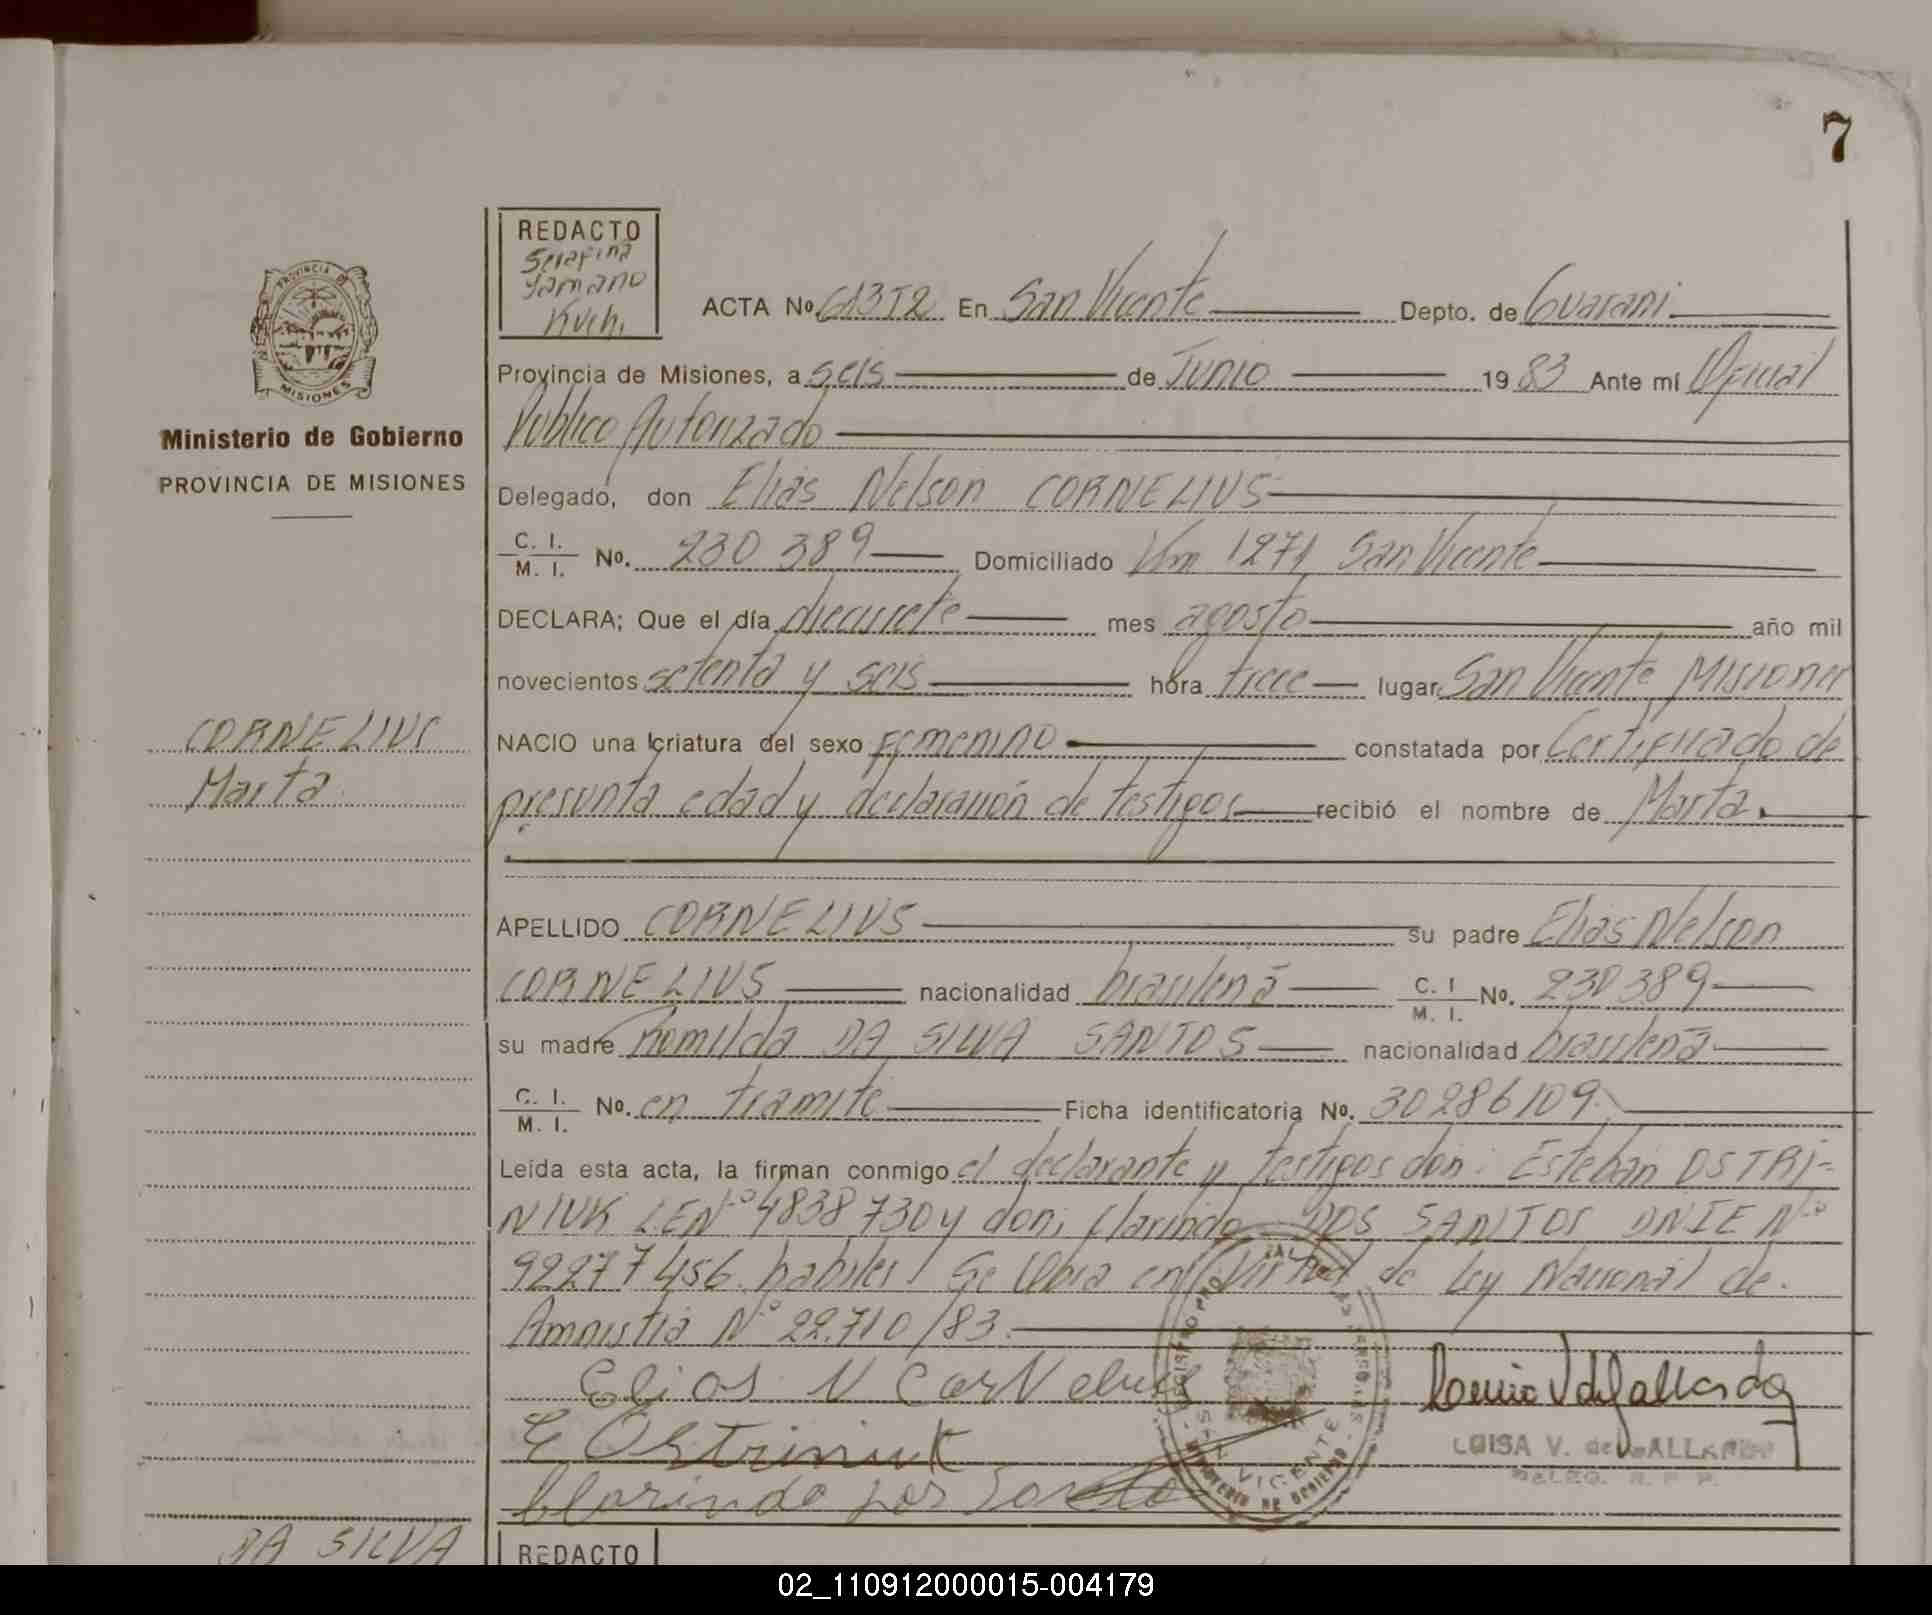 7
REDACTO
Serafina
Yamano
Kuch.
ACTA No. 613 T2 En San Vicente Depto. de Guarani
Provincia de Misiones, a seis de Junio 1983 Ante mí Oficial
Público Autorizado
Ministerio de Gobierno
PROVINCIA DE MISIONES
PROVINCIA DE
MISIONES
Delegado, don Elias Nelson CORNELIUS
C. I.
M. I. No. 230 389 Domiciliado Km 1271 San Vicente
DECLARA; Que el día diecisiete mes agosto año mil
novecientos setenta y seis hora trece lugar San Vicente Misiones
CORNELIUS
Marta
NACIO una criatura del sexo femenino constatada por Certificado de
presunta edad y declaración de testigos recibió el nombre de Marta.
APELLIDO CORNELIUS su padre Elias Nelson
CORNELIUS nacionalidad brasileña C. I. M. I. No. 230389
su madre Romilda DA SILVA SANTOS nacionalidad brasileña
C. I.
M. I. No. en tramite Ficha identificatoria No. 30286109.
Leída esta acta, la firman conmigo el declarante y testigos don: Esteban OSTRI-
NIUK L.E Nº 4838730 y don; Clarindo DOS SANTOS DNIE Nº
92277456. habiles! Se labra en virtud de Ley Nacional de.
Amnistia Nº 22.710/83.
Elias N Cornelius
E Ostriniuk
Clarindo dos Santo
SAN VICENTE
MINISTERIO DE GOBIERNO
LUISA V. de GALLARDO
DELEG. R. P. P.
DA SILVA
REDACTO
02_110912000015-004179